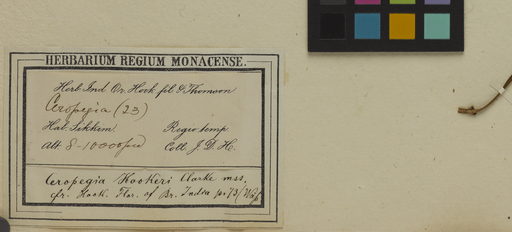 HERBARIUM REGIUM MONACENSE.
Herb. Ind. Or. Hook. fil. & Thomson
Ceropegia (23)
Hab. Sikkim Regio temp.
Alt. 8-10000 ped Coll. J. D. H.
Ceropegia Hookeri Clarke mss.
cfr. Hook. Flor. of Br. India